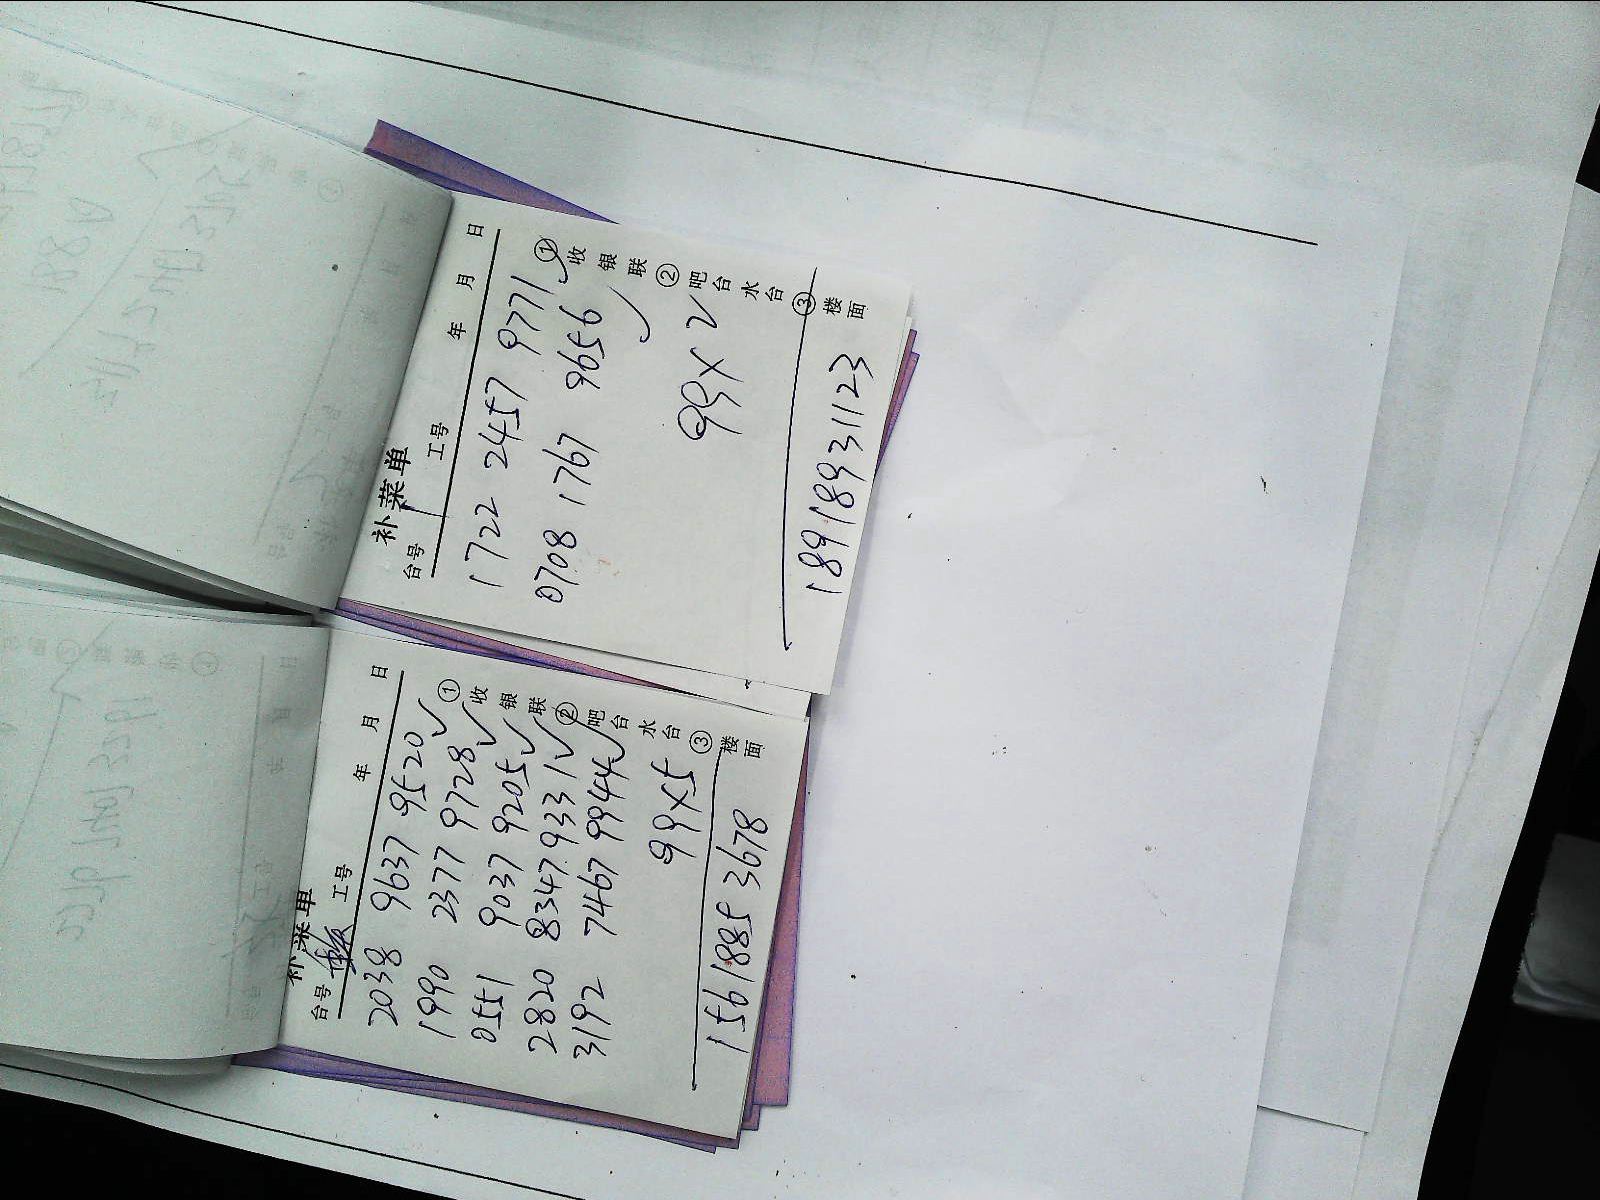 补菜单
台号 工号 年 月 日
1722 2457 9771
0708 1767 9656
99×2
18918931123
①收银联 ②吧台水台 ③楼面
补菜单
台号 工号 年 月 日
2038 9637 9520
1990 2377 9728
0551 9037 9205
2820 8347 9331
3192 7467 9944
99×5
1561885 3678
①收银联 ②吧台水台 ③楼面